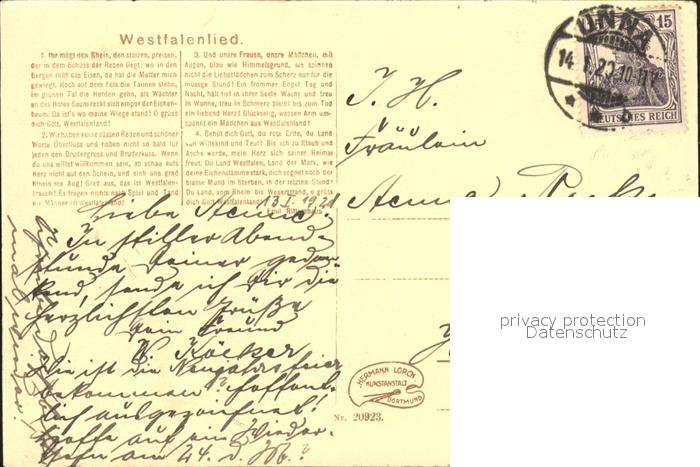 Westfalenlied.
1. Ihr mögt den Rhein, den stolzen, preisen,
der in dem Schoss der Reben liegt; wo in den
Bergen ruht das Eisen, da hat die Mutter mich
gewiegt. Hoch auf dem Fels die Tannen stehn,
im grünen Tal die Herden gehn, als Wächter
an des Hofes Saum reckt sich empor der Eichen-
baum. Da ist's wo meine Wiege stand! O grüss
dich Gott, Westfalenland!
2. Wir haben keine süssen Reden und schöner
Worte Überfluss und haben nicht so bald für
jeden den Brudergruss und Bruderkuss. Wenn
du uns willst willkommen sein, so schau aufs
Herz nicht auf den Schein, und sieh uns grad
hinein ins Aug! Grad aus, das ist Westfalen-
brauch! Es fragen nichts nach Spiel und Tand
die Männer aus Westfalenland!
3. Und unsre Frauen, unsre Mädchen, mit
Augen, blau wie Himmelsgrund, sie spinnen
nicht die Liebesfädchen zum Scherz nur für die
müssge Stund! Ein frommer Engel Tag und
Nacht, hält tief in ihrer Seele Wacht und treu
in Wonne, treu in Schmerz bleibt bis zum Tod
ein liebend Herz! Glückselig, wessen Arm um-
spannt, ein Mädchen aus Westfalenland!
4. Behüt dich Gott, du rote Erde, du Land
von Wittekind und Teut! Bis ich zu Staub und
Asche werde, mein Herz sich seiner Heimat
freut. Du Land Westfalen, Land der Mark, wie
deine Eichenstämme stark, dich segnet noch der
blasse Mund im Sterben, in der letzten Stund!
Du Land, vom Rhein bis Weserstrand, o grüss
dich Gott Westfalenland!
Emil Rittershaus
13. I. 1921
Liebe Aenne!
In stiller Abend-
stunde Deiner geden-
kend, sende ich Dir die
herzlichsten Grüße
Dein Freund
W. Köcker
Wie ist die Neujahrsfeier
bekommen? Hoffent-
lich ausgezeichnet!
Hoffe auf ein Wieder-
sehn am 24. d. Mt.?
UNNA
14.
10-11
15
DEUTSCHES REICH
Fräulein
HERMANN LORCH
KUNSTANSTALT
DORTMUND
Nr. 20923.
privacy protection
Datenschutz